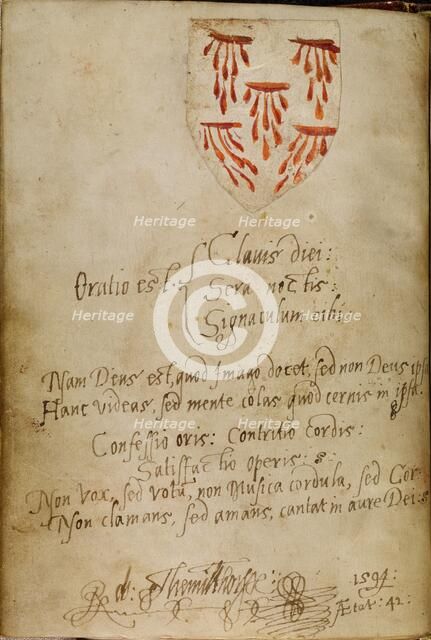 Clavis diei:
Oratio est. Sera noctis:
Signaculum cibi
Nam Deus est, quod Imago docet, sed non Deus ipsa
Hanc videas, sed mente colas quod cernis in ipsa.
Confessio oris: Contritio cordis:
Satisfactio operis:
Non Vox, sed votū, non Musica cordula, sed Cor:
Non clamans, sed amans, cantat in aure Dei:
1594:
Ætat: 42:
Heritage Heritage
Heritage Heritage
Heritage Heritage
Heritage Heritage
©